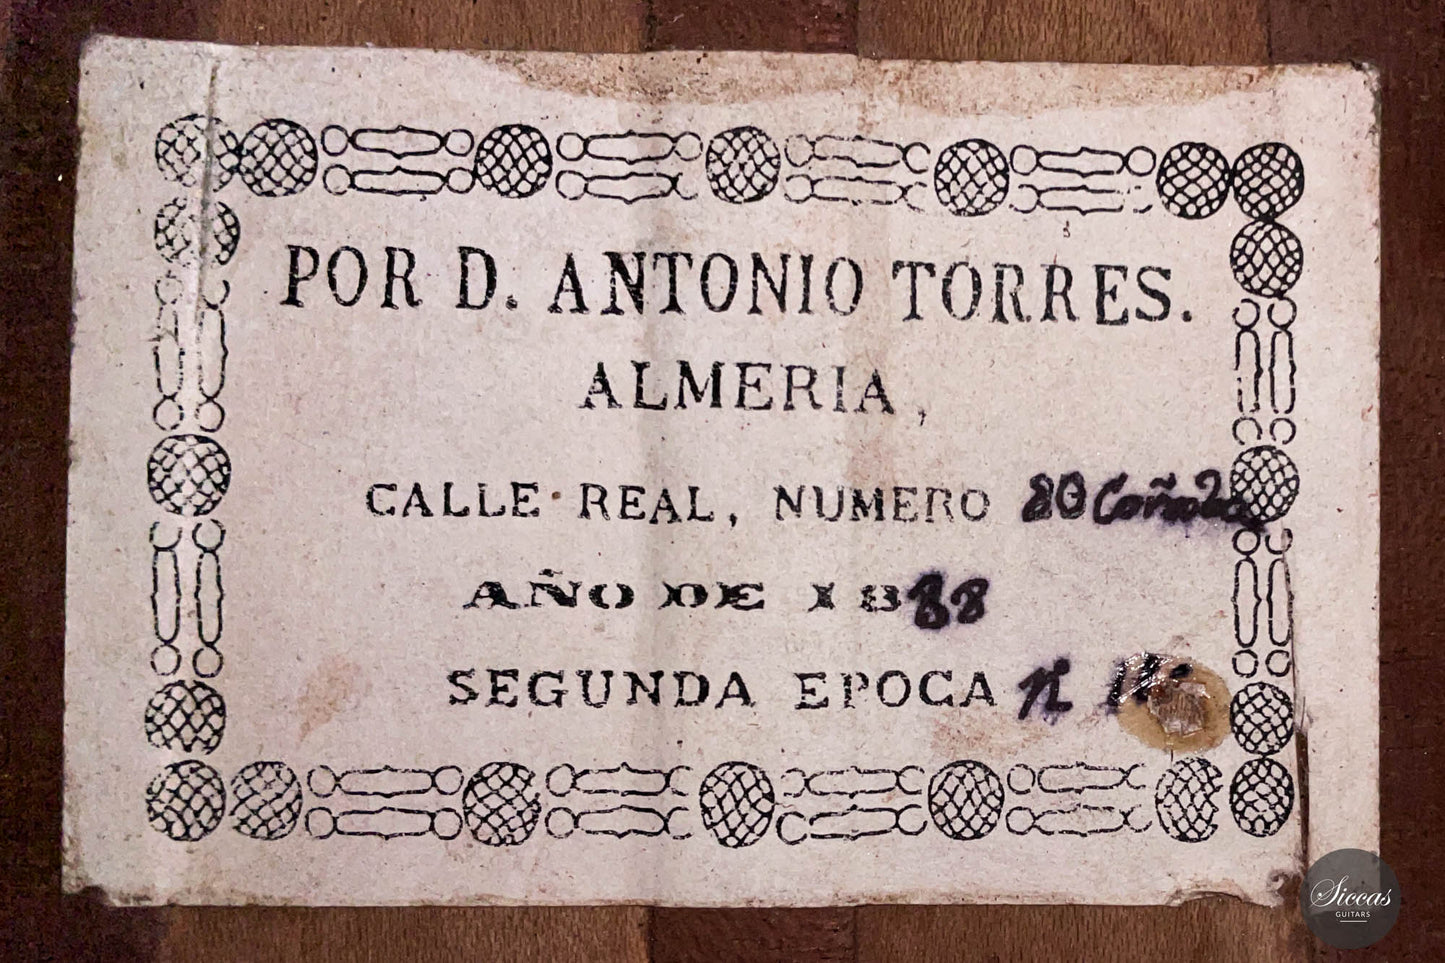 POR D. ANTONIO TORRES.
ALMERIA,
CALLE REAL, NUMERO 80 Cañada
AÑO DE 1888
SEGUNDA EPOCA n
Siccas
GUITARS